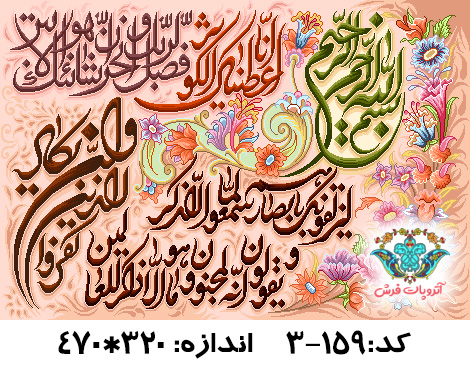 بسم الله الرحمن الرحیم
انا اعطیناک الکوثر
فصل لربک و انحر ان شانئک هو الابتر
وان یکاد الذین کفروا
لیزلقونک بابصارهم لما سمعوا الذکر
و یقولون انه لمجنون و ما هو الا ذکر للعالمین
آتروپات فرش
کد:۱۵۹-۳ اندازه: ۳۲۰*۴۷۰